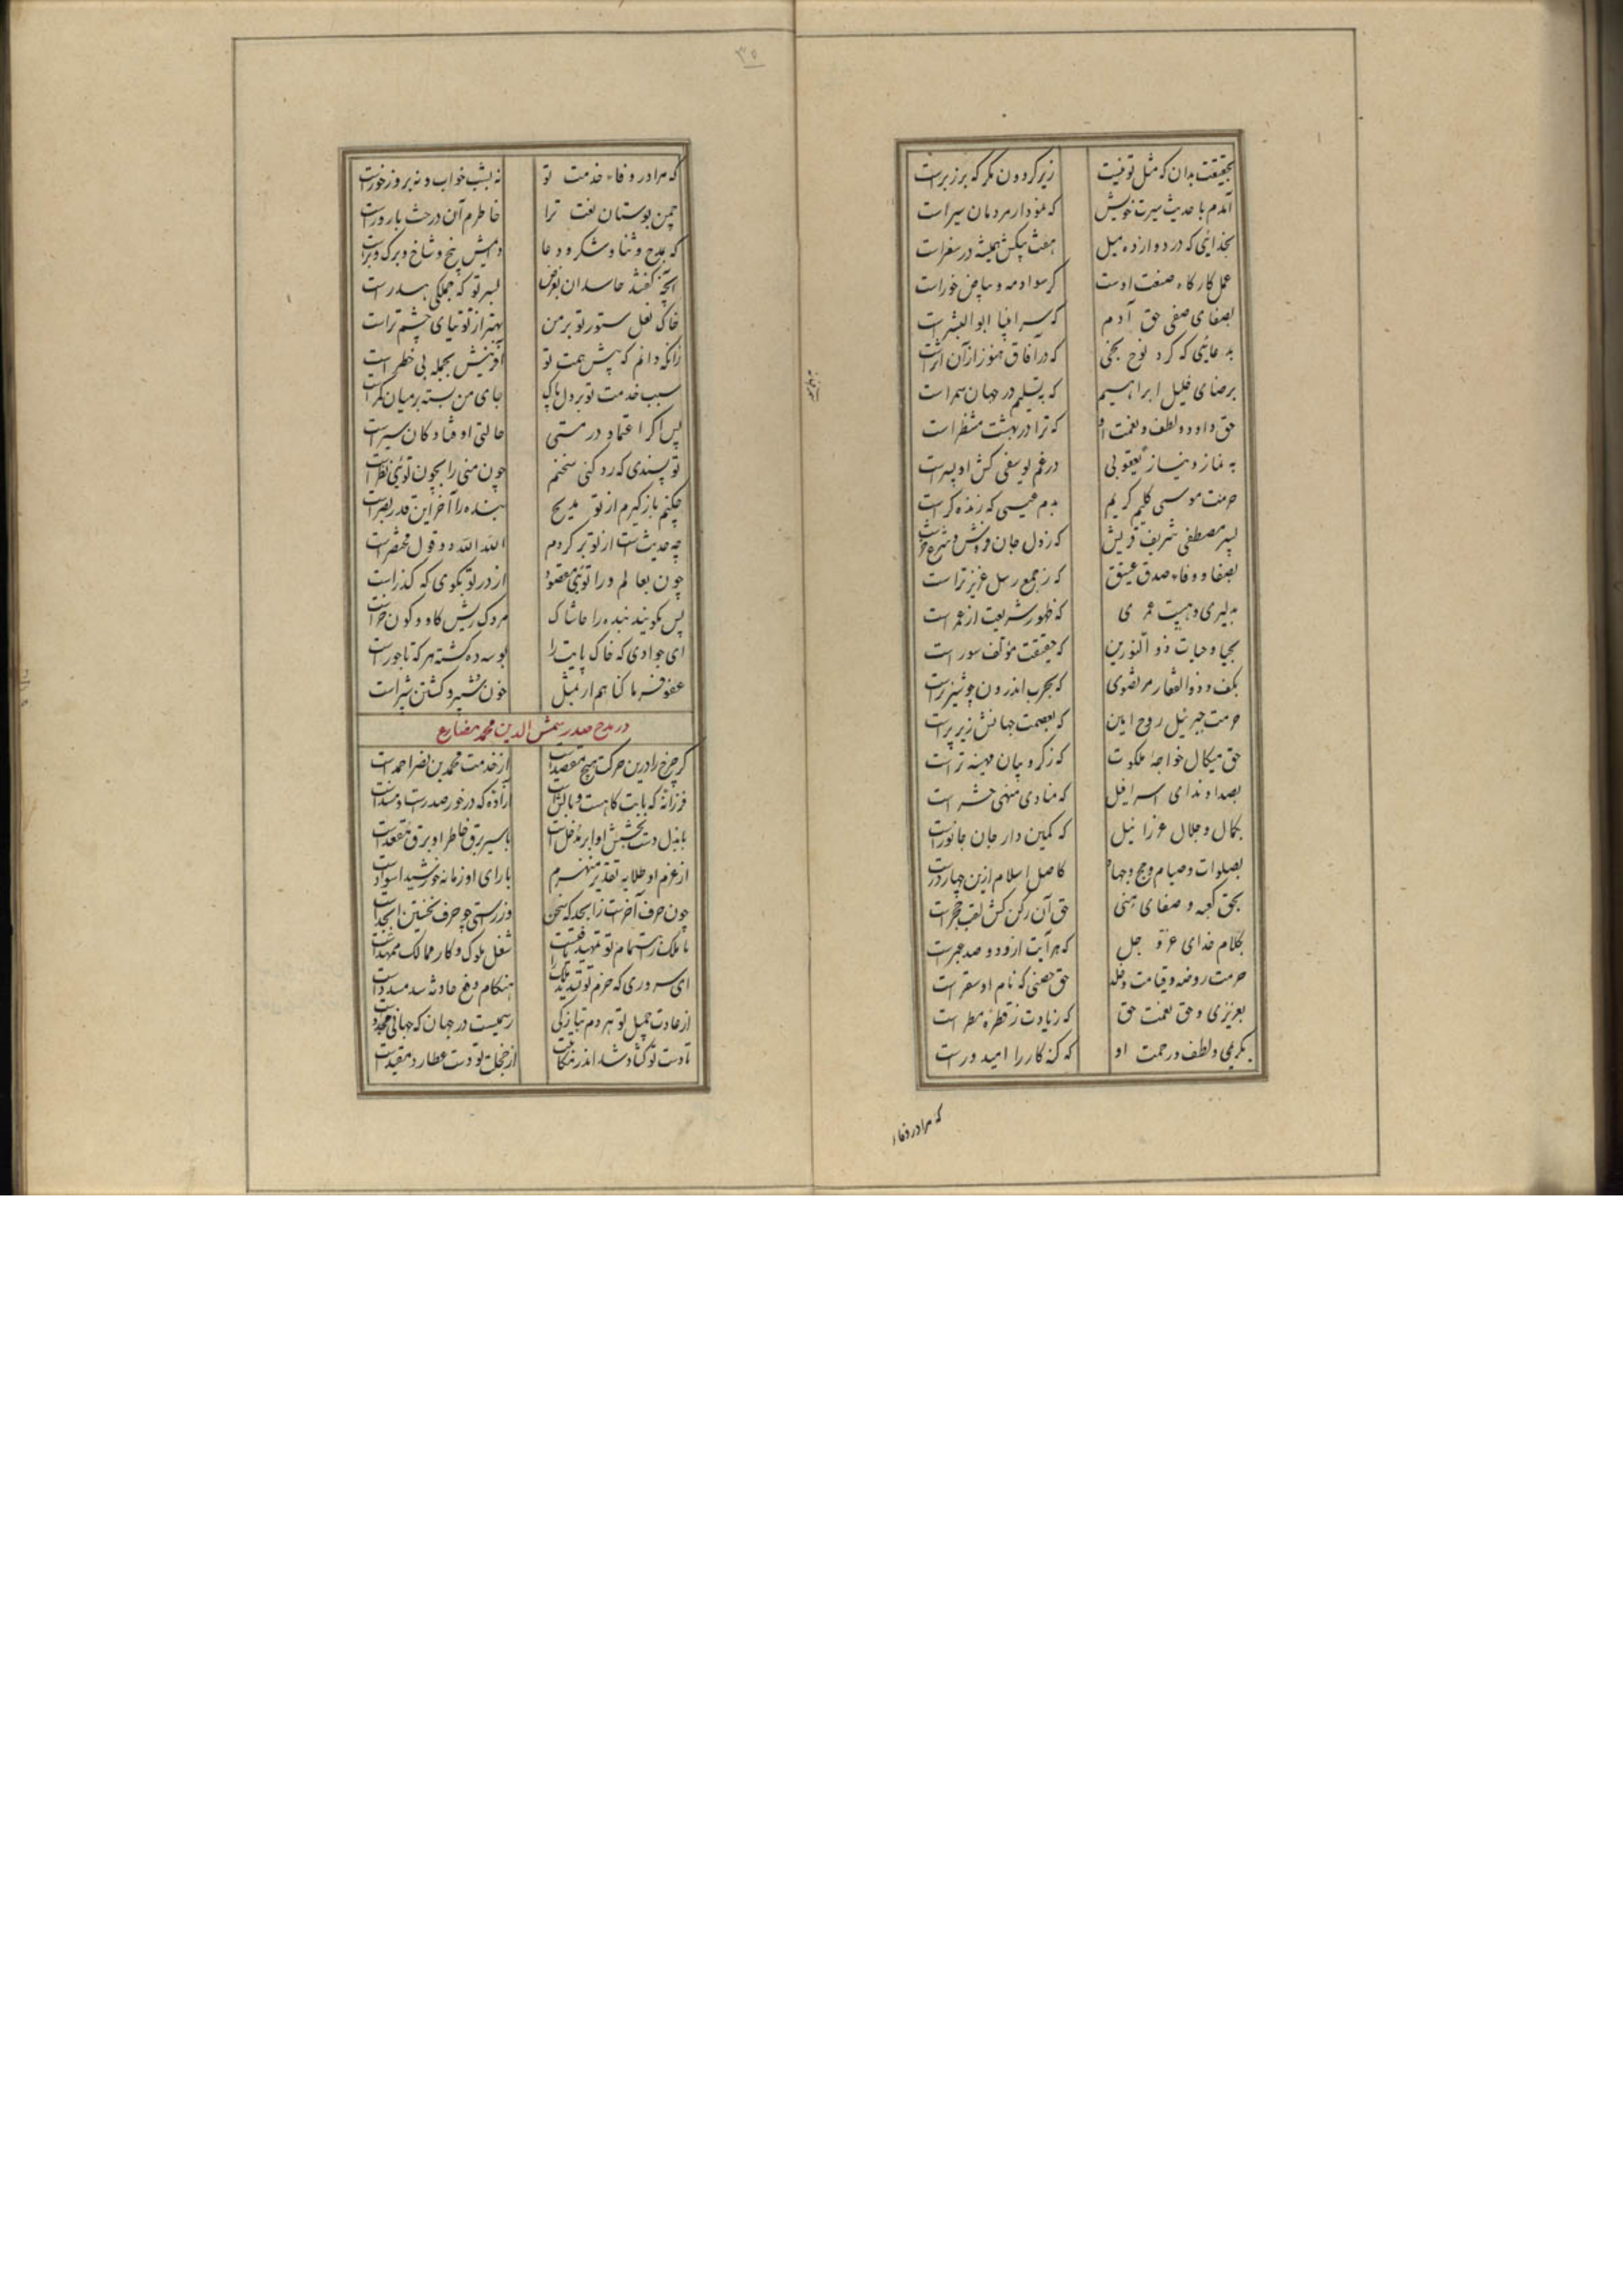 بحقیقت بدان که مثل تو نیست    زیر گردون مگر که بر زبر است
آمدم با حدیث سیرت خویش    که نمودار مردمان سیر است
بخدائی که در دوازده میل    هفت پیکش همیشه در سفر است
عمل کارگاه صنعت اوست    گر سواد مه و بیاض خور است
بصفای صفی حق آدم    که سر انبیا ابوالبشر است
بدعائی که کرد نوح نجی    که در آفاق هنوز از آن اثر است
برضای خلیل ابراهیم    که بتسلیم در جهان سمر است
حق داود و لطف و نعمت او    که ترا در بهشت منتظر است
به نماز و نیاز یعقوبی    در غم یوسفی کش او پسر است
حرمت موسی کلیم کریم    بدم عیسی که زنده گر است
بسر مصطفی شریف قریش    که ز دل جان
بصفا و وفاء صدق عتیق    که ز جمع رسل عزیزتر است
به لیری و هیبت عمری    که ظهور شریعت از عمر است
بحیا و حیات ذو النورین    که حقیقت مؤلف سور است
بکف و ذوالفقار مرتضوی    که بحرب اندرون چو شیر نر است
حرمت جبرئیل روح امین    که بعصمت جهانش زیر پر است
حق میکال خواجهٔ ملکوت    که ز کروبیان مهینه تر است
بصدا و ندای اسرافیل    که منادی منهی حشر است
بکمال و جلال عزرائیل    که کمین دار جان جانور است
بصلوات و صیام و حج و جهاد    کاصل اسلام ازین چهار در است
بحق کعبه و صفای منی    حق آن رکن کش لقب حجر است
بکلام خدای عز و جل    که هر آیت ازو دو صد عبر است
حرمت روضه و قیامت و خلد    حق حصنی که نام او سقر است
بعزیزی و حق نعمت حق    که زیادت ز قطرهٔ مطر است
بکریمی و لطف و رحمت او    که گنه کار را امید ور است
که مرا در وفاء
۳۵
که مرا در وفاء خدمت تو    نه بشب خواب و نه بروز خور است
چمن بوستان نعت ترا    خاطرم آن درخت بارور است
که بمدح و ثنا و شکر و دعا    دایمش بیخ و شاخ و برگ و بر است
آنچه گفتند حاسدان بغرض    بسر تو که جملگی هدر است
خاک نعل ستور تو بر من    بهتر از توتیای چشم تر است
زانکه دانم که پیش همت تو    آفرینش بجمله بی خطر است
سبب خدمت تو بر دل پاک    جای من بسته بر میان کمر است
پس اگر اعتماد در مستی    حالتی اوفتاد کان سیر است
تو پسندی که رد کنی سخنم    چون منی را بچون توئی نظر است
چکنم باز گیرم از تو مدیح    بنده را آخر این قدر بصر است
چه حدیث است از تو بر گردم    الله الله دو قول مختصر است
چون بعالم در را توئی مقصود    از در تو بگوی که گذر است
پس بگویند بنده را حاشاک    مردک ریش گاو و کون خر است
ای جوادی که خاک پایت را    بوسه ده گشته هر که تاجور است
عفو فرما گناهم ار بمثل    خون شبیر و کشتن شبر است
در مدح صدر شمس الدین محمد مضارع
گر چرخ را درین حرکت هیچ مقصد است    از خدمت محمد بن نصر احمد است
فرزانهٔ که بابت گاهست و بالش است    آزادهٔ که در خور صدرست و مسند است
با بذل دست بخشش او ابر مدخل است    با سیر برق خاطر او برق مقعد است
از عزم او طلایه تقدیر منهزم    با رای او زمانه خورشید اسود است
چون حرف آخرست ز ابجد که سخن    وز راستی چو حرف نخستین ابجد است
تا ملک ز اهتمام تو تمهید یافتست    شغل ملوک و کار ممالک ممهد است
ای سروری که حزم تو تایید ملک را    هنگام دفع حادثه سد مسدد است
از عادت جمیل تو هر دم بتازگی    رسمیست در جهان که جهانی مجدد است
تا دست تو گشاده شد اندر مکاتبت    از خجلت تو دست عطارد مقید است